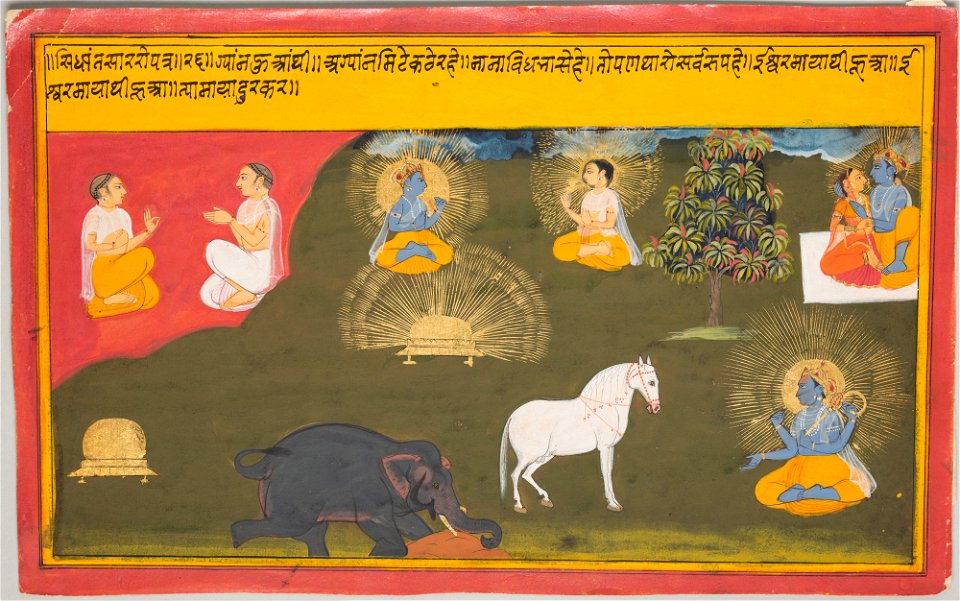 ॥सिधांतसाररोपत्र॥२६॥ग्यांनकुआंथी॥अग्यांनमिटेकठेरहे॥नानाविधभासेहे॥तोपणथारोसर्वरूपहे॥ईश्वरमायाथीकूआ॥ई
श्वरमायाथीकूआ॥त्यामायादुरकर॥